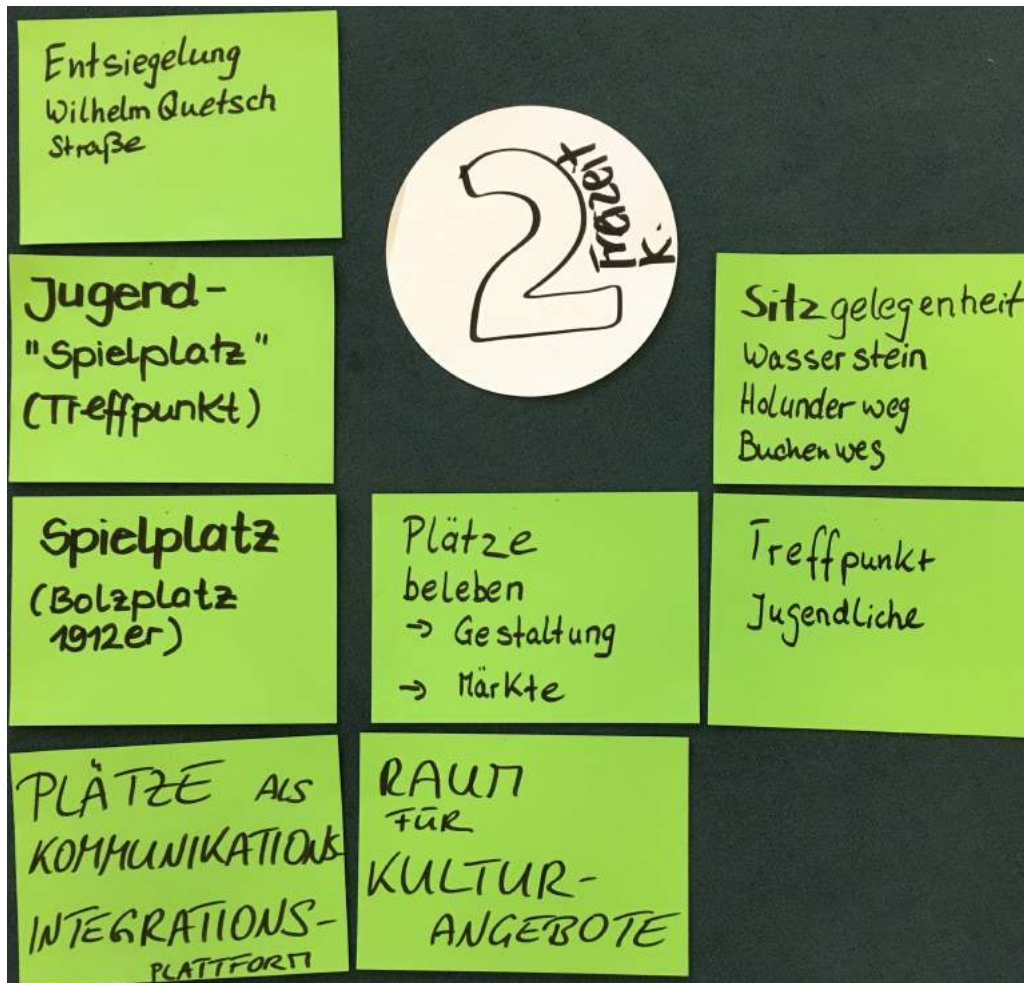 Entsiegelung
Wilhelm Quetsch
Straße
2
K.
Jugend-
"Spielplatz"
(Treffpunkt)
Sitzgelegenheit
Wasserstein
Holunderweg
Buchenweg
Spielplatz
(Bolzplatz
1912er)
Plätze
beleben
→ Gestaltung
→ Märkte
Treffpunkt
Jugendliche
PLÄTZE ALS
KOMMUNIKATIONS-
INTEGRATIONS-
PLATTFORM
RAUM
FÜR
KULTUR-
ANGEBOTE